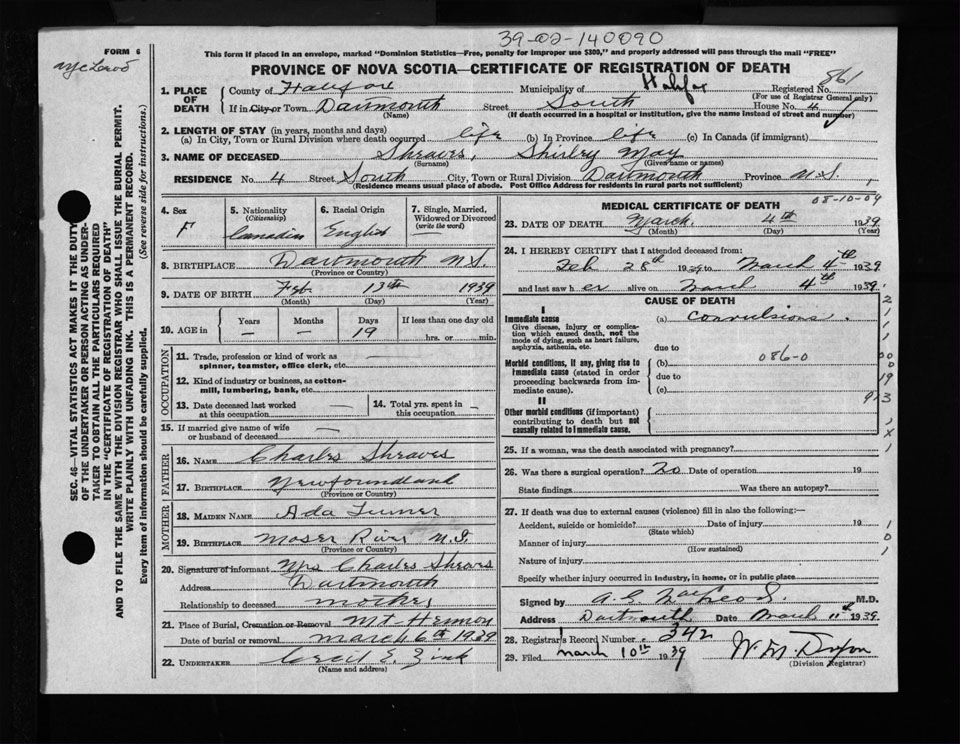 39-02-140090
FORM 6
This form if placed in an envelope, marked "Dominion Statistics—Free, penalty for improper use $300," and properly addressed will pass through the mail "FREE"
PROVINCE OF NOVA SCOTIA—CERTIFICATE OF REGISTRATION OF DEATH
861
1. PLACE OF DEATH
County of Halifax Municipality of Halifax Registered No.
(For use of Registrar General only)
If in City or Town Dartmouth Street South House No. 4
(Name) (If death occurred in a hospital or institution, give the name instead of street and number)
2. LENGTH OF STAY (in years, months and days)
(a) In City, Town or Rural Division where death occurred life (b) In Province life (c) In Canada (if immigrant)
3. NAME OF DECEASED Shreaves, Shirley May
(Surname) (Given name or names)
RESIDENCE No. 4 Street South City, Town or Rural Division Dartmouth Province N.S.
(Residence means usual place of abode. Post Office Address for residents in rural parts not sufficient)
4. Sex F
5. Nationality (Citizenship) Canadian
6. Racial Origin English
7. Single, Married, Widowed or Divorced (write the word) —
8. BIRTHPLACE Dartmouth N.S.
(Province or Country)
9. DATE OF BIRTH Feb. 13th 1939
(Month) (Day) (Year)
10. AGE in Years — Months — Days 19 If less than one day old hrs. or min.
OCCUPATION
11. Trade, profession or kind of work as spinner, teamster, office clerk, etc. —
12. Kind of industry or business, as cotton-mill, lumbering, bank, etc.
13. Date deceased last worked at this occupation —
14. Total yrs. spent in this occupation —
15. If married give name of wife or husband of deceased —
FATHER
16. NAME Charles Shreaves
17. BIRTHPLACE Newfoundland
(Province or Country)
MOTHER
18. MAIDEN NAME Ada Turner
19. BIRTHPLACE Moser River N.S.
(Province or Country)
20. Signature of informant Mrs Charles Shreaves
Address Dartmouth
Relationship to deceased mother
21. Place of Burial, Cremation or Removal Mt. Hermon
Date of burial or removal March 6th 1939
22. UNDERTAKER Cecil E. Zink
(Name and address)
MEDICAL CERTIFICATE OF DEATH
08-10-09
23. DATE OF DEATH March 4th 1939
(Month) (Day) (Year)
24. I HEREBY CERTIFY that I attended deceased from:
Feb 28th 1939 to March 4th 1939
and last saw h er alive on March 4th 1939.
CAUSE OF DEATH
I
Immediate cause (a) Convulsions.
Give disease, injury or complication which caused death, not the mode of dying, such as heart failure, asphyxia, asthenia, etc.
due to
Morbid conditions, if any, giving rise to immediate cause (stated in order proceeding backwards from immediate cause).
(b) 086-0
due to
(c)
II
Other morbid conditions (if important) contributing to death but not causally related to immediate cause.
25. If a woman, was the death associated with pregnancy?
26. Was there a surgical operation? no Date of operation 19
State findings Was there an autopsy?
27. If death was due to external causes (violence) fill in also the following:—
Accident, suicide or homicide? Date of injury 19
(State which)
Manner of injury
(How sustained)
Nature of injury
Specify whether injury occurred in industry, in home, or in public place
Signed by A. C. MacLeod. M.D.
Address Dartmouth Date March 11th 1939.
28. Registrar's Record Number 342
29. Filed March 10th 1939
(Division Registrar)
SEC. 46—VITAL STATISTICS ACT MAKES IT THE DUTY
OF THE UNDERTAKER OR PERSON ACTING AS UNDERTAKER TO OBTAIN ALL THE PARTICULARS REQUIRED
IN THE "CERTIFICATE OF REGISTRATION OF DEATH"
AND TO FILE THE SAME WITH THE DIVISION REGISTRAR WHO SHALL ISSUE THE BURIAL PERMIT.
WRITE PLAINLY WITH UNFADING INK. THIS IS A PERMANENT RECORD.
Every item of information should be carefully supplied. (See reverse side for instructions.)